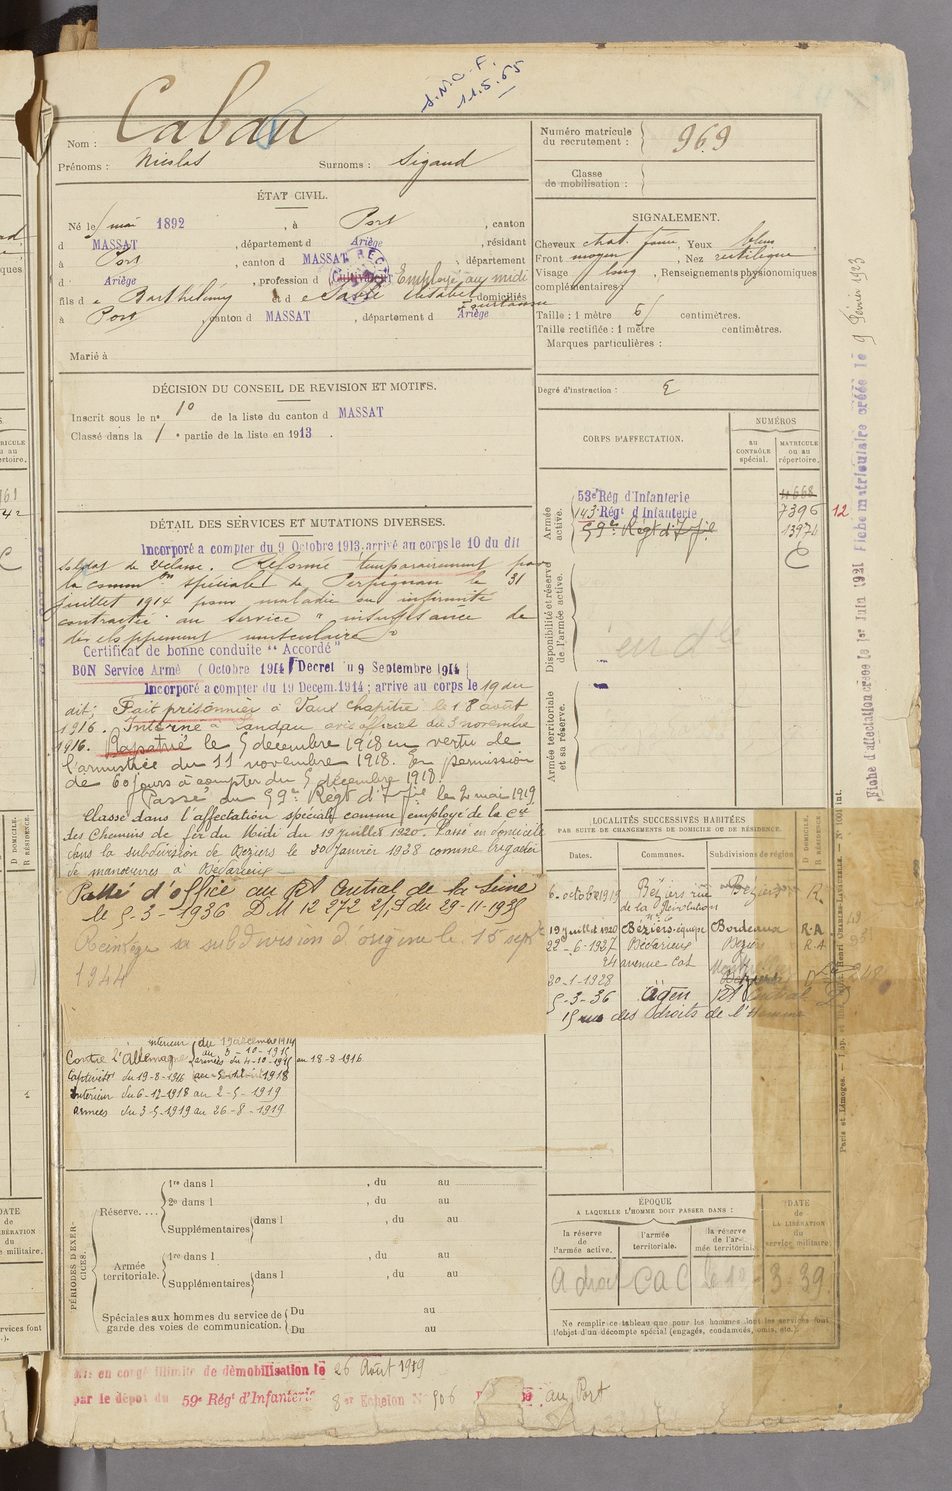 S.N.C.F.
11.5.55
Nom : Cabau
Prénoms : Nicolas Surnoms : Sigaud
Numéro matricule du recrutement : 969
Classe de mobilisation :
ÉTAT CIVIL.
Né le mai 1892, à Port, canton
d MASSAT, département d Ariège, résidant
à Port, canton d MASSAT, département
d Ariège, profession d Cultivateur Employé au midi
fils de Barthélemy et de Elisabet, domiciliés
à Port, canton d MASSAT, département d Ariège
Marié à
SIGNALEMENT.
Cheveux chat. foncé, Yeux bleus
Front moyen, Nez rectiligne
Visage long, Renseignements physionomiques
complémentaires
Taille : 1 mètre 61 centimètres.
Taille rectifiée : 1 mètre centimètres.
Marques particulières :
Degré d'instruction : 2
DÉCISION DU CONSEIL DE REVISION ET MOTIFS.
Inscrit sous le n° 10 de la liste du canton d MASSAT
Classé dans la 1e partie de la liste en 1913.
CORPS D'AFFECTATION.
NUMÉROS
AU CONTRÔLE SPÉCIAL.
MATRICULE OU AU RÉPERTOIRE.
Armée active.
53e Rég d'Infanterie 4668
143 Régt d'Infanterie 7396 12
59e Régt d'Inf ie 13974
Disponibilité et réserve de l'armée active.
Armée territoriale et sa réserve.
DÉTAIL DES SERVICES ET MUTATIONS DIVERSES.
Incorporé a compter du 9 Octobre 1913. arrivé au corps le 10 du dit
soldat de 2e classe. Réformé temporairement par
la common spéciale de Perpignan le 31
juillet 1914 pour maladie ou infirmité
contractée au service "insuffisance de
développement musculaire"
Certificat de bonne conduite "Accordé"
BON Service Armé (Octobre 1914) Decret du 9 Septembre 1914
Incorporé a compter du 19 Decem. 1914 ; arrivé au corps le 19 du
dit; Fait prisonnier à Vaux Chapitre le 18 août
1916. Interné à Landau avis officiel du 3 novembre
1916. Rapatrié le 5 décembre 1918 en vertu de
l'armistice du 11 novembre 1918. En permission
de 60 jours à compter du 5 décembre 1918.
Passé au 59e Régt d'Inf ie le 2 mai 1919
Classé dans l'affectation spéciale comme employé de la Cie
des Chemins de fer du Midi du 19 juillet 1920. Passé en domicile
dans la subdivision de Béziers le 20 janvier 1928 comme brigadier
de manœuvres à Bédarieux
Passé d'office au Rt Central de la Seine
le 5-3-1936 DM 12272 2/1,S du 29-11-1935
Réintègre sa subdivision d'origine le 15 sept
1944
LOCALITÉS SUCCESSIVES HABITÉES
PAR SUITE DE CHANGEMENTS DE DOMICILE OU DE RÉSIDENCE.
Dates. Communes. Subdivisions de région D DOMICILE. R RÉSIDENCE.
6. octobre 1919 Béziers rue de la Révolution Béziers R.
19 juillet 1920 Béziers-équipe Bordeaux R.A
22-6-1927 Bédarieux Béziers R.A
24 avenue Cot
20-1-1928 Béziers
5-3-36 Agen, Rt Central D
15 rue des droits de l'Homme
Contre l'Allemagne
intérieur du 19 décembre 1914 au 3-10-1915
armées du 4-10-1915 au 18-8-1916
Captivité du 19-8-1916 au 5-12-1918
Intérieur du 6-12-1918 au 2-5-1919
armées du 3-5-1919 au 26-8-1919
PÉRIODES D'EXERCICES.
Réserve....
1re dans l , du au
2e dans l , du au
Supplémentaires dans l , du au
Armée territoriale.
1re dans l , du au
Supplémentaires dans l , du au
Spéciales aux hommes du service de garde des voies de communication.
Du au
Du au
ÉPOQUE
A LAQUELLE L'HOMME DOIT PASSER DANS :
la réserve de l'armée active.
l'armée territoriale.
la réserve de l'armée territoriale.
DATE de LA LIBÉRATION du service militaire.
A droit CAC le 10-3-39.
Ne remplir ce tableau que pour les hommes dont les services font l'objet d'un décompte spécial (engagés, condamnés, omis, etc.).
Mis en congé illimité de démobilisation le 26 Août 1919
par le dépôt du 59e Régt d'Infanterie 8er Echelon N° 906 au Port
Fiche d'affectation créée le 1er Juin 1921 Fiche matriculaire créée le 9 Février 1923